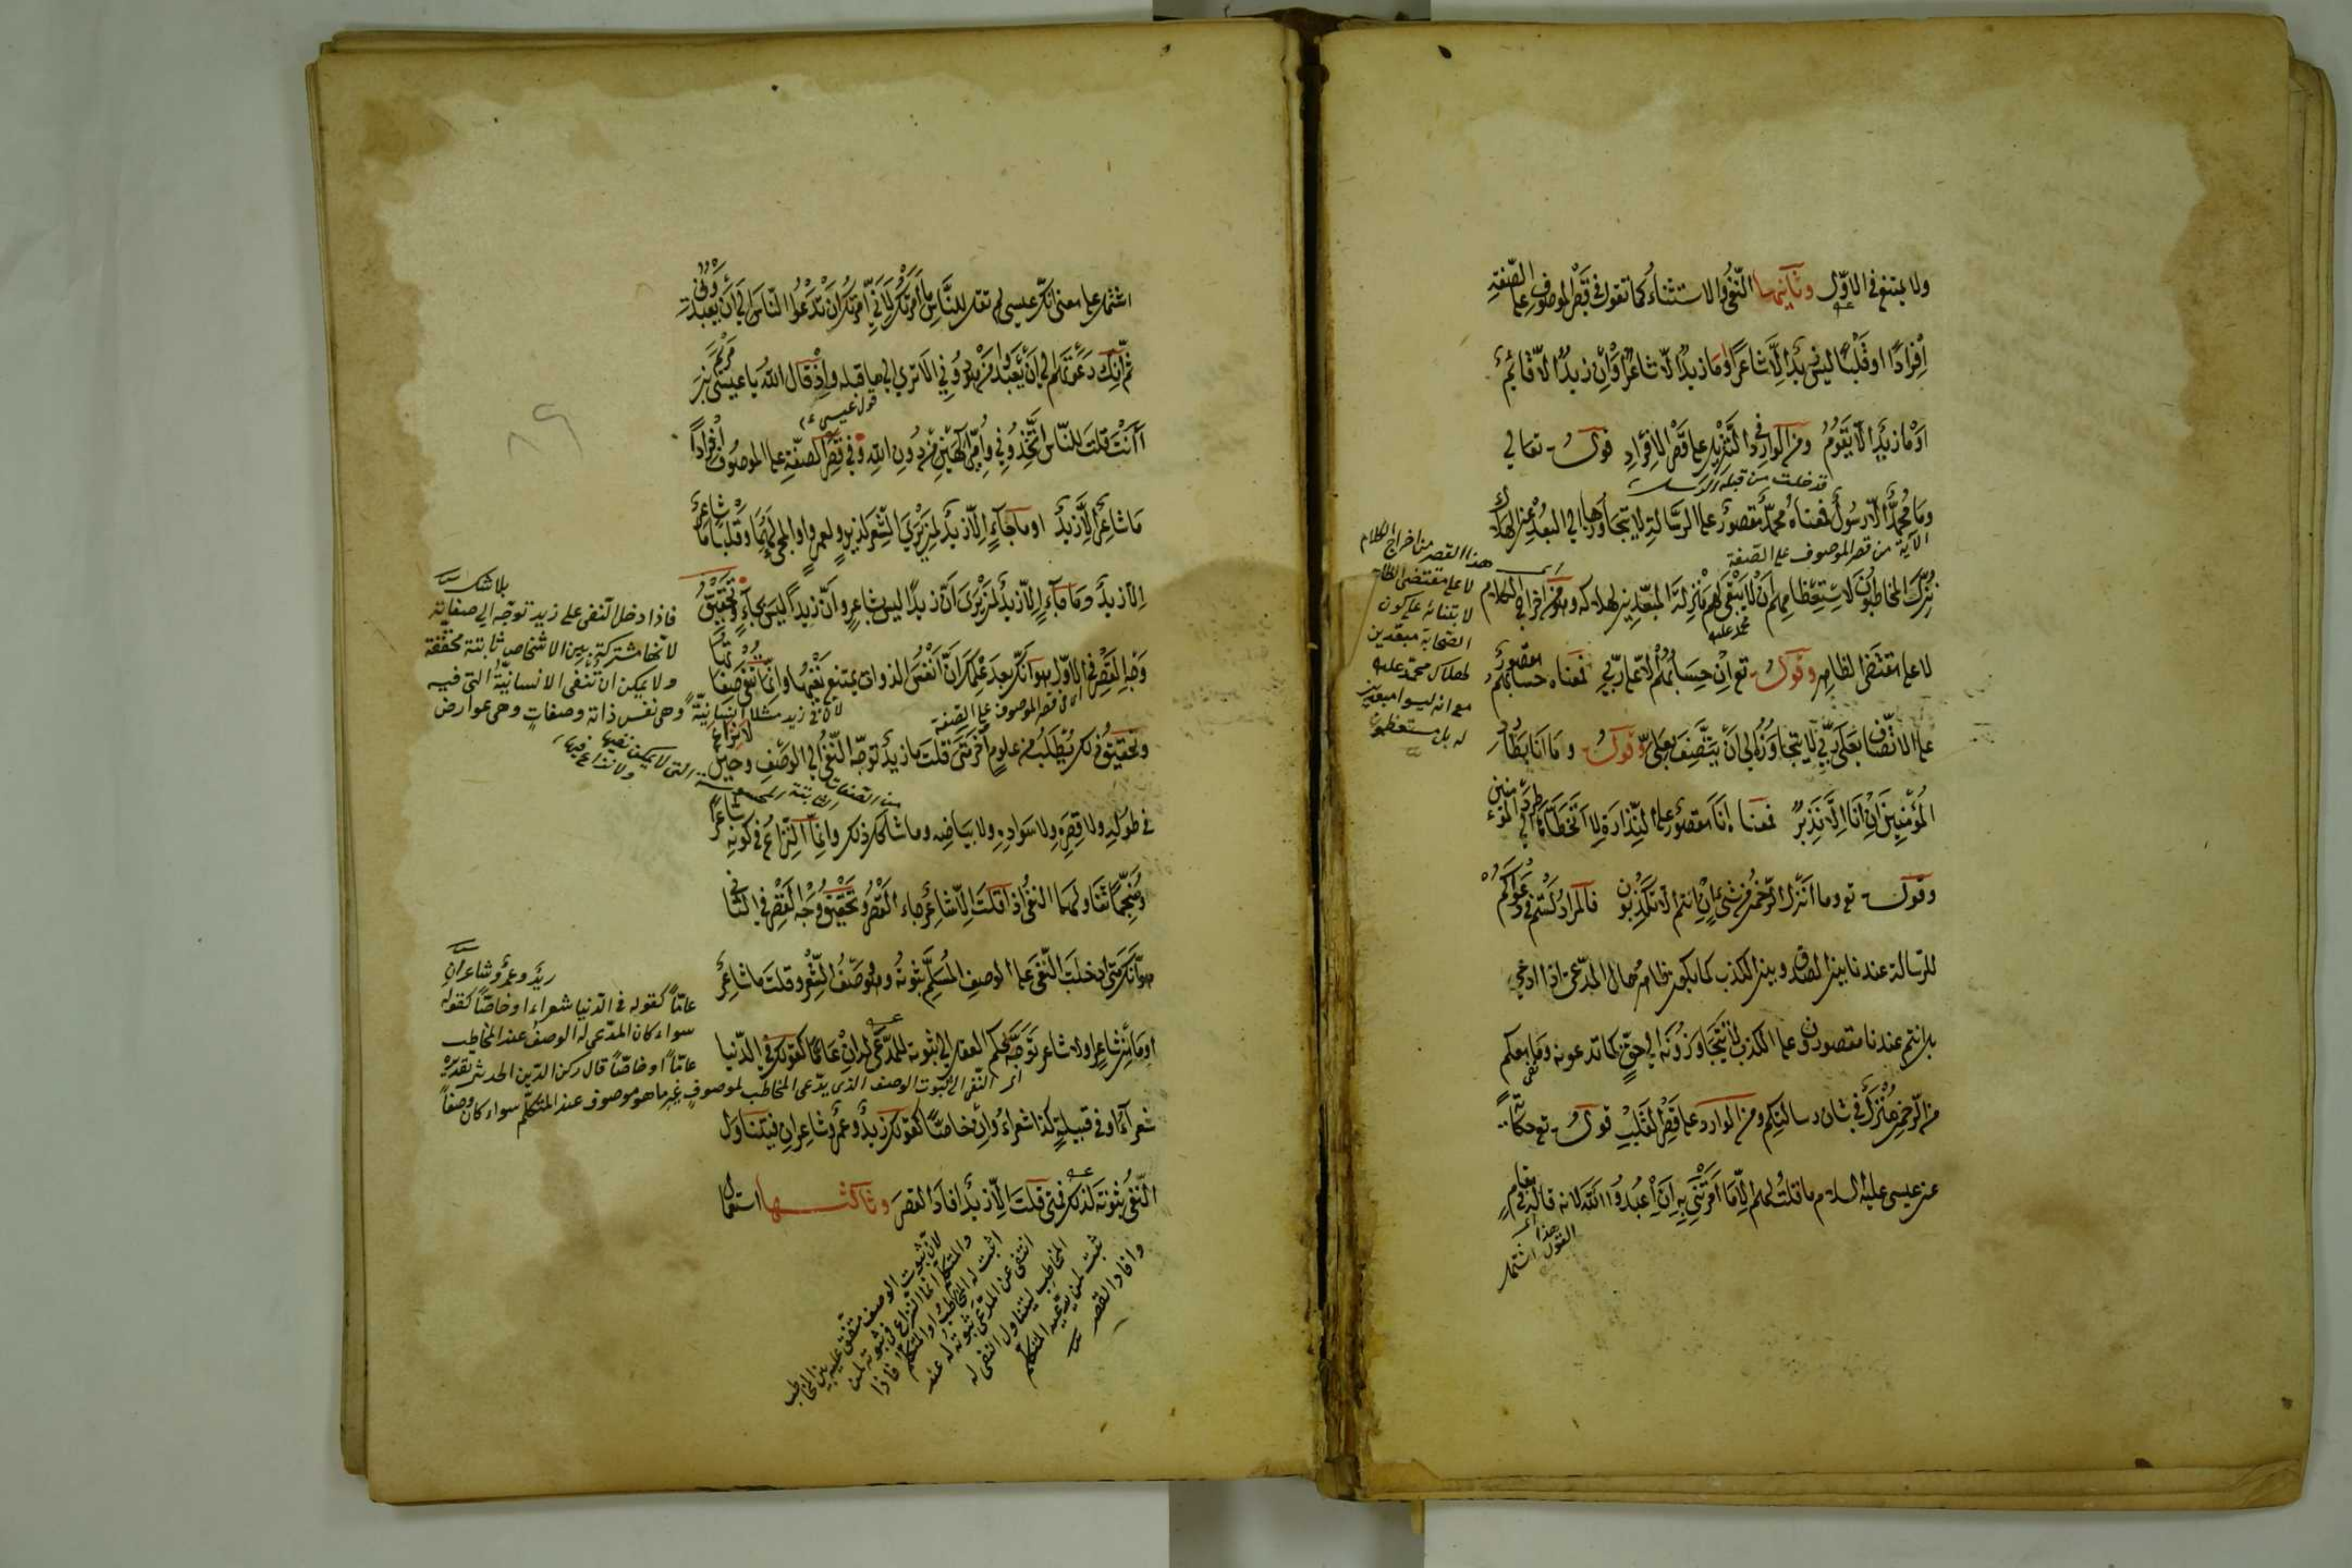 ولا يمتنع في الاول وثانيها النفي والاستثناء كما تقول في قصر الموصوف على الصفة
افرادا او قلبا ليس زيد الا شاعرا او ما زيد الا شاعر او ان زيد الا قائم
او ما زيد الا يقوم ومن الوارد في التنزيل على قصر الافراد قوله تعالى
قد خلت من قبله الرسل
وما محمد الا رسول فمعناه محمد مقصور على الرسالة لا يتجاوزها الى البعد عن الهلاك
الآية من قصر الموصوف على الصفة
نزل المخاطبون لاستعظامهم ان لا يبقى لهم منزلة المبعدين لهلاكه وهو من اخراج الكلام
لا على مقتضى الظاهر وقوله تع ان حسابهم الا على ربي فمعناه حسابهم مقصور
على الاتصاف بعلى ربي لا يتجاوزه الى ان يتصف بعلي وقوله وما انا بطارد
المؤمنين ان انا الا نذير فمعناه انا مقصور على النذارة لا اتخطاها الى طرد المؤمنين
وقوله تع وما انزل الرحمن من شئ ان انتم الا تكذبون فالمراد لستم في دعواكم
للرسالة عندنا بين الصدق وبين الكذب كما يكون ظاهر حال المدعى اذا ادعى
بل انتم عندنا مقصورون على الكذب لا تتجاوزونه الى حق كما تدعونه وما معكم
من الرحمن منزل في شان رسالتكم ومن الوارد على قصر القلب قوله تع حكاية
عن عيسى عليه السلام ما قلت لهم الا ما امرتني به ان اعبدوا الله لانه قاله في مقام
هذا القول
اشتمل
هذا القصر من اخراج الكلام
لا على مقتضى الظاهر
لابتنائه على كون
الصحابة مبعدين
لهلاك محمد عليه
مع انه ليسوا مبعدين
له بل مستعظمون
اشتمل على معنى انك يا عيسى لم تقل للناس ما امرتك لاني امرتك ان تدعوا الناس الى ان يعبدوني
ثم انك دعوتهم الى ان يعبدوا من هو دوني الا ترى الى ما قبله واذ قال الله يا عيسى بن مريم
قول عيسى ع م
أأنت قلت للناس اتخذوني وامي الهين من دون الله وفي قصر الصفة على الموصوف افرادا
ما شاعر الا زيد او ما جاء الا زيد لمن يرى الشعر لزيد ولعمرو او المجئ لهما وقلبا ما شاعر
الا زيد وما جاء الا زيد لمن يرى ان زيدا ليس بشاعر وان زيدا ليس بجاء وتحقيق
وجه القصر في الاول هو انك بعد علمك ان انفس الذوات يمتنع نفيها وانما تنفى صفاتها
اى في قصر الموصوف على الصفة
وتحقيق ذلك يطلب من علوم اخر متى قلت ما زيد توجه النفي الى الوصف وحين لا نزاع
في طوله ولا قصره ولا سواده ولا بياضه وما شاكل ذلك وانما النزاع في كونه شاعرا
او منجما تناولهما النفي فاذا قلت الا شاعر جاء القصر وتحقيق وجه القصر في الثاني
هو انك متى ادخلت النفي على الوصف المسلم ثبوته وهو وصف الشعر وقلت ما شاعر
او ما من شاعر او لا شاعر توجه بحكم العقل الى ثبوته للمدعى له ان عاما كقولك في الدنيا
شعراء او في قبيلة كذا شعراء وان خاصا كقولك زيد وعمرو شاعران فيتناول
النفي ثبوته لذلك فمتى قلت الا زيد افاد القصر وثالثها استعمال
بلا شك
فاذا دخل النفى على زيد توجه الى صفاته
لانها مشتركة بين الاشخاص ثابتة محققة
ولا يمكن ان تنفى الانسانية التى فيه
لان في زيد مثلا انسانية وهى نفس ذاته وصفات وهى عوارض
من الصفات الثابتة التى لا يمكن نفيها
ولا نزاع فيها
زيد وعمرو شاعران
عاما كقوله في الدنيا شعراء او خاصا كقوله
سواء كان المدعى له الوصف عند المخاطب
عاما او خاصا قال ركن الدين الحديثى تقديره
اى النفى الى ثبوت الوصف الذى يدعى المخاطب لموصوف غير ما هو موصوف عند المتكلم سواء كان وصفا
لان ثبوت الوصف متفق عليه بين المخاطب
والمتكلم انما النزاع في ثبوته لمن
اثبت له المخاطب او المتكلم فاذا
انتفى عن المدعى ثبوته له عند
المخاطب ليتناول النفى له
ثبت لمن يدعيه المتكلم
وافاد القصر